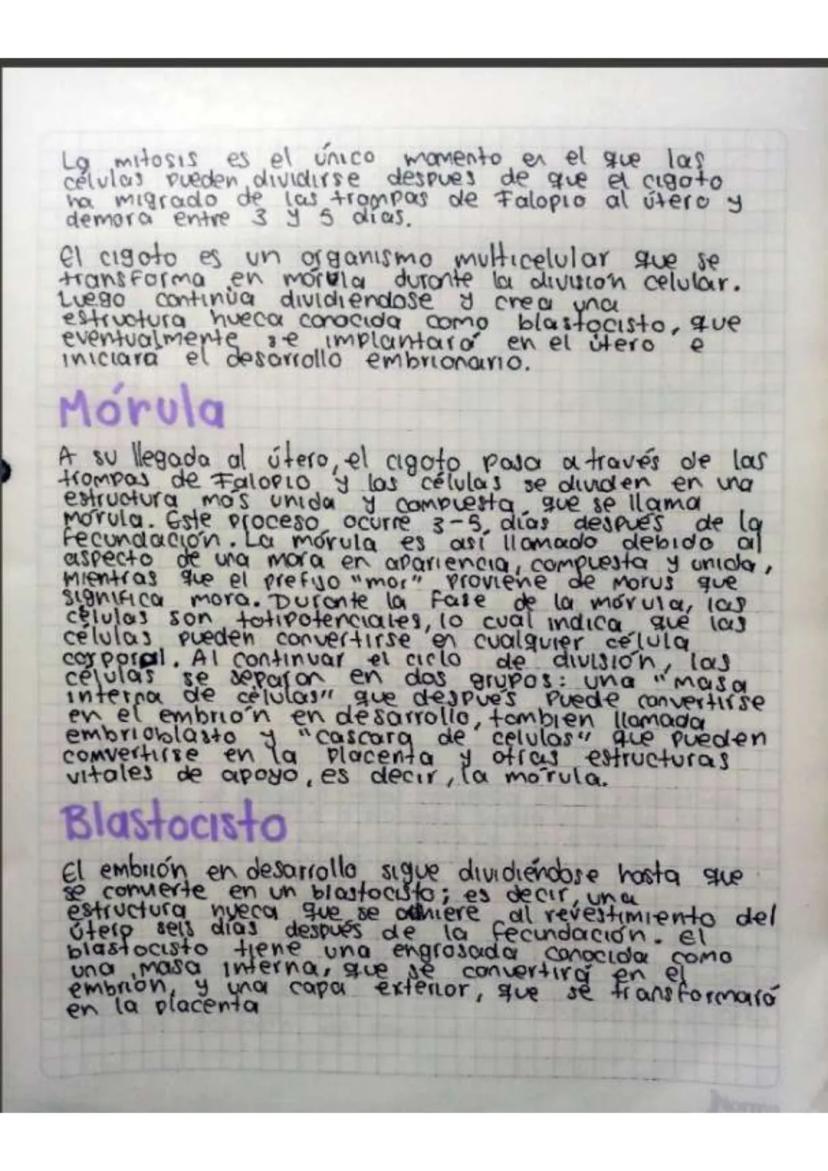 La mitosis es el único momento en el que las
células pueden dividirse despues de que el cigoto
ha migrado de las trompas de Falopio al útero y
demora entre 3 y 5 días.
El cigoto es un organismo multicelular que se
transforma en mórula durante la división celular.
Luego continúa dividiéndose y crea una
estructura hueca conocida como blastocisto, que
eventualmente se implantará en el útero e
iniciará el desarrollo embrionario.
Mórula
A su llegada al útero, el cigoto pasa a través de las
trompas de Falopio y las células se dividen en una
estructura más unida y compuesta, que se llama
mórula. Este proceso ocurre 3-5 días después de la
fecundación. La mórula es así llamado debido al
aspecto de una mora en apariencia, compuesta y unida,
mientras que el prefijo "mor" proviene de Morus que
significa mora. Durante la fase de la mórula, las
células son totipotenciales, lo cual indica que las
células pueden convertirse en cualquier célula
corporal. Al continuar el ciclo de división, las
células se separan en dos grupos: una "masa
interna de células" que después puede convertirse
en el embrión en desarrollo, tambien llamada
embrioblasto y "cascara de celulas" que pueden
convertirse en la placenta y otras estructuras
vitales de apoyo, es decir, la mórula.
Blastocisto
El embrión en desarrollo sigue dividiéndose hasta que
se convierte en un blastocisto; es decir, una
estructura hueca que se adhiere al revestimiento del
útero seis días después de la fecundación. El
blastocisto tiene una engrosada conocida como
una masa interna, que se convertirá en el
embrión, y una capa exterior, que se transformará
en la placenta
Norma